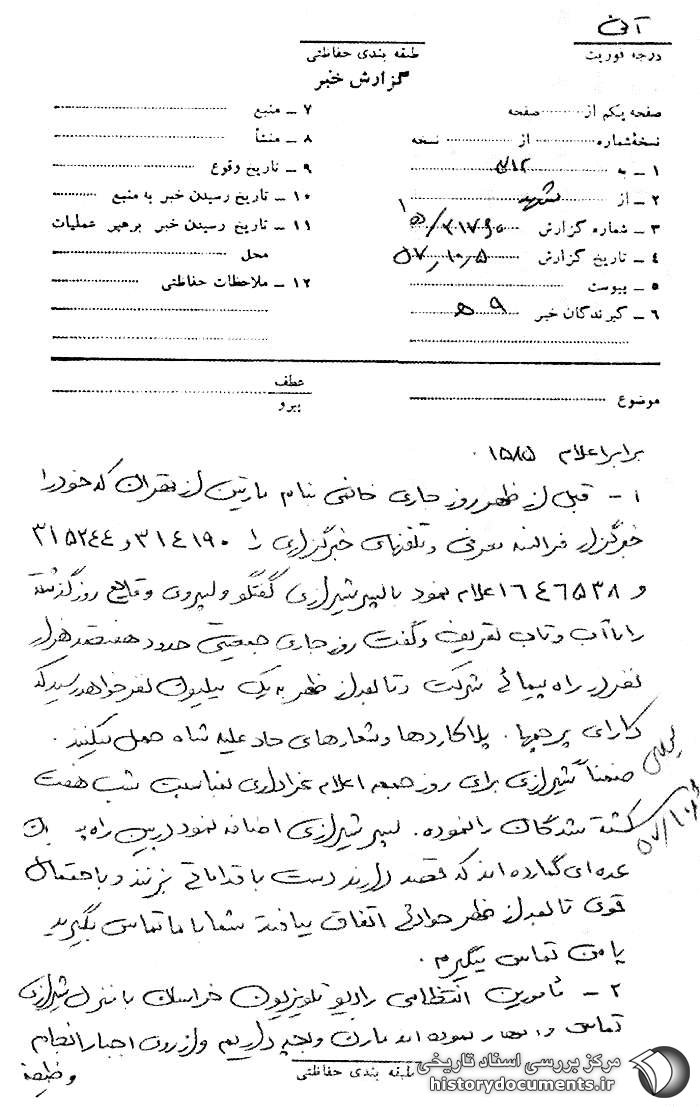 آنی
درجه فوریت
طبقه بندی حفاظتی
گزارش خبر
صفحه یکم از ........ صفحه
نسخهٔ شماره ........ از ........ نسخه
۱ ـ به ۳۱۲
۲ ـ از مشهد
۳ ـ شماره گزارش
۴ ـ تاریخ گزارش ۵۷٫۱۰٫۵
۵ ـ پیوست
۶ ـ گیرندگان خبر ۹ ه
۷ ـ منبع
۸ ـ منشأ
۹ ـ تاریخ وقوع
۱۰ ـ تاریخ رسیدن خبر به منبع
۱۱ ـ تاریخ رسیدن خبر برهبر عملیات
محل
۱۲ ـ ملاحظات حفاظتی
موضوع
عطف
پیرو
برابر اعلام ۱۵۸۵ .
۱ ـ قبل از ظهر روز جاری خانمی بنام مارتین از تهران که خود را
خبرگزار فرانسه معرفی و تلفنهای خبرگزاری را ۳۱٤۱۹۰ و ۳۱۵۲٤٤
و ٦٤٦۵۳۸ اعلام نمود با پسر شیرازی گفتگو و پسر وی وقایع روز گذشته
را با آب و تاب تعریف و گفت روز جاری جمعیتی حدود هفتصد هزار
نفر در راه پیمائی شرکت و تا بعد از ظهر به یک میلیون نفر خواهد رسید که
دارای پرچمها . پلاکاردها و شعارهای حاد علیه شاه حمل میکنند .
ضمناً شیرازی برای روز جمعه اعلام عزاداری بمناسبت شب هفت
کشته شدگان را نموده . پسر شیرازی اضافه نمود در بین راه پیمایان
عده ای گمارده اند که قصد دارند دست باقداماتی بزنند و باحتمال
قوی تا بعد از ظهر حوادثی اتفاق بیافتد شما با ما تماس بگیرید
یا من تماس میگیرم .
۲ ـ مأمورین انتظامی رادیو تلویزیون خراسان با منزل شیرازی
تماس و اظهار نموده اند ما زن و بچه داریم و از روی اجبار انجام
وظیفه
طبقه بندی حفاظتی
مرکز بررسی اسناد تاریخی
historydocuments.ir